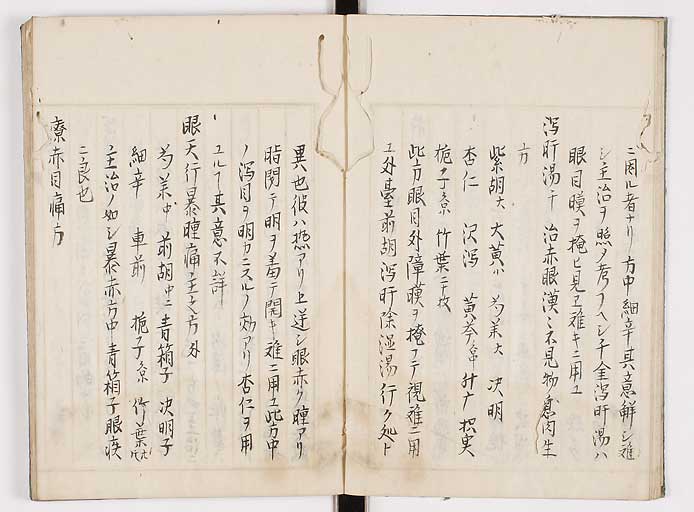 ニ因ル者ナリ方中細辛其意解シ難
シ主治ヲ照ノ考フヘシ千金瀉肝湯ハ
眼目瞙ヲ掩ヒ見ヱ難キニ用ユ
瀉肝湯 千 治赤眼漠々不見物息肉生
方
柴胡大 大黄小 芍薬大 决明
杏仁 沢瀉 黄芩各 升广 枳実
梔子各 竹葉二十枚
此方眼目外障瞙ヲ掩フテ視難ニ用
ユ外臺前胡瀉肝除湿湯行ク処ト
異也彼ハ熱アリ上逆シ眼赤ク腫アリ
脂閉テ明ヲ羞テ開キ難ニ用ユ此方中
ノ瀉目ヲ明カニスルノ効アリ杏仁ヲ用
ユルヿ其意不詳
眼天行暴腫痛主之方 外
芍薬中 前胡中 青箱子 决明子
細辛 車前 梔子各 竹葉
主治ノ如シ暴赤方中青箱子眼疾
ニ良也
療赤目痛方